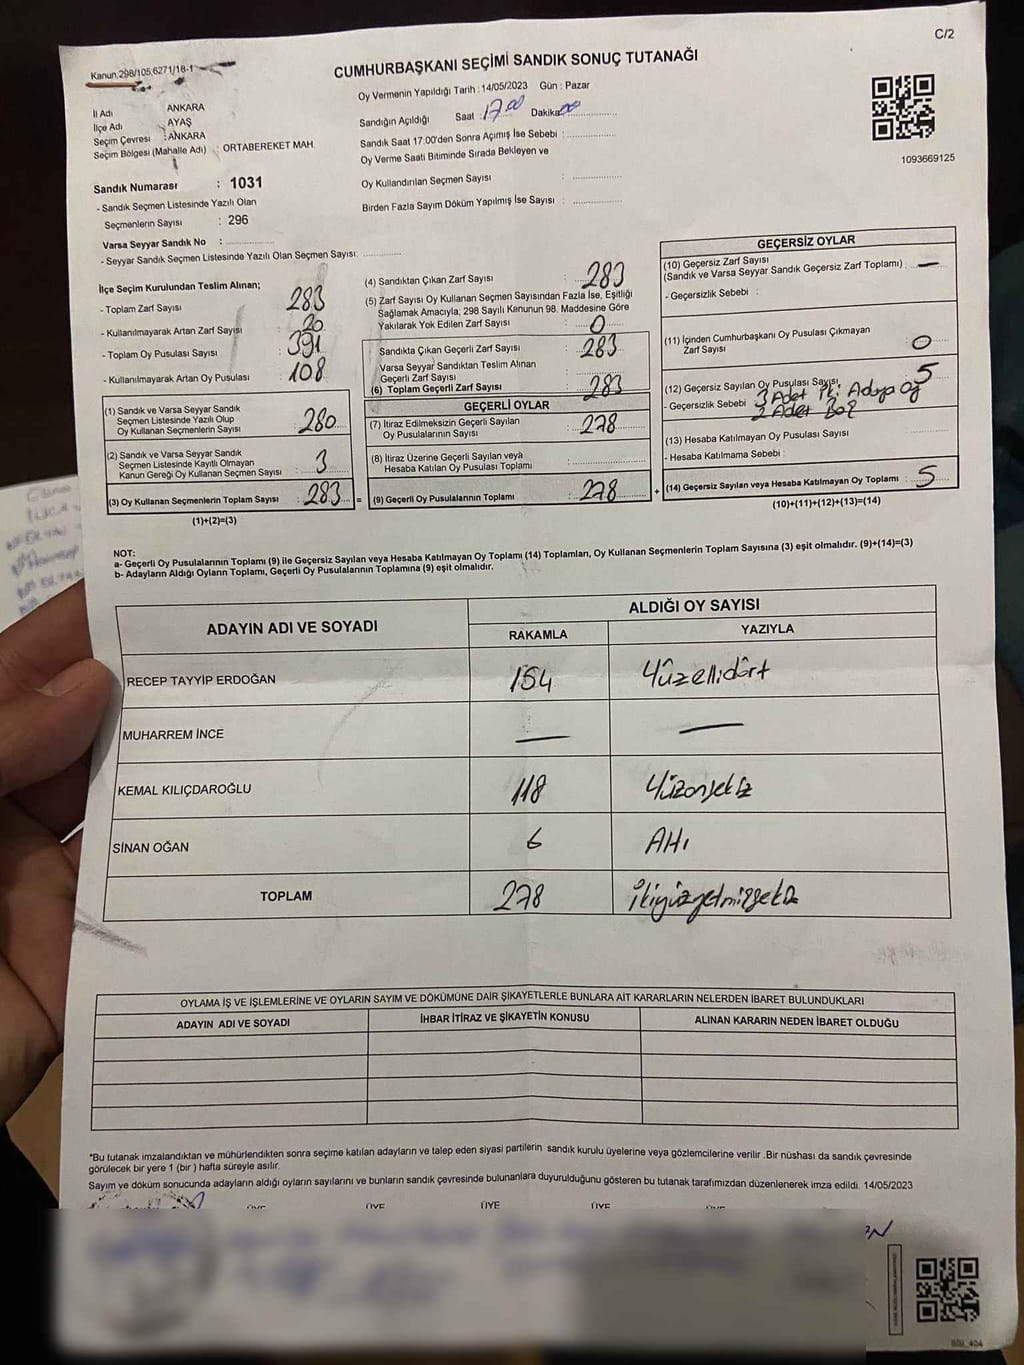 C/2
Kanun.298/105;6271/18-1
CUMHURBAŞKANI SEÇİMİ SANDIK SONUÇ TUTANAĞI
Oy Vermenin Yapıldığı Tarih : 14/05/2023 Gün : Pazar
İl Adı ANKARA
İlçe Adı AYAŞ
Seçim Çevresi : ANKARA
Seçim Bölgesi (Mahalle Adı) : ORTABEREKET MAH.
Sandığın Açıldığı Saat : 17.00 Dakika 00
Sandık Saat 17:00'den Sonra Açımış İse Sebebi :
Oy Verme Saati Bitiminde Sırada Bekleyen ve
Oy Kullandırılan Seçmen Sayısı :
Birden Fazla Sayım Döküm Yapılmış İse Sayısı :
1093669125
Sandık Numarası : 1031
- Sandık Seçmen Listesinde Yazılı Olan
Seçmenlerin Sayısı : 296
Varsa Seyyar Sandık No :
- Seyyar Sandık Seçmen Listesinde Yazılı Olan Seçmen Sayısı:
İlçe Seçim Kurulundan Teslim Alınan;
- Toplam Zarf Sayısı 283
- Kullanılmayarak Artan Zarf Sayısı 20
- Toplam Oy Pusulası Sayısı 391
- Kullanılmayarak Artan Oy Pusulası 108
(1) Sandık ve Varsa Seyyar Sandık
Seçmen Listesinde Yazılı Olup
Oy Kullanan Seçmenlerin Sayısı : 280
(2) Sandık ve Varsa Seyyar Sandık
Seçmen Listesinde Kayıtlı Olmayan
Kanun Gereği Oy Kullanan Seçmen Sayısı : 3
(3) Oy Kullanan Seçmenlerin Toplam Sayısı : 283 =
(1)+(2)=(3)
(4) Sandıktan Çıkan Zarf Sayısı : 283
(5) Zarf Sayısı Oy Kullanan Seçmen Sayısından Fazla İse, Eşitliği
Sağlamak Amacıyla, 298 Sayılı Kanunun 98. Maddesine Göre
Yakılarak Yok Edilen Zarf Sayısı : 0
Sandıkta Çıkan Geçerli Zarf Sayısı : 283
Varsa Seyyar Sandıktan Teslim Alınan
Geçerli Zarf Sayısı
(6) Toplam Geçerli Zarf Sayısı : 283
GEÇERLİ OYLAR
(7) İtiraz Edilmeksizin Geçerli Sayılan
Oy Pusulalarının Sayısı : 278
(8) İtiraz Üzerine Geçerli Sayılan veya
Hesaba Katılan Oy Pusulası Toplamı :
(9) Geçerli Oy Pusulalarının Toplamı : 278 +
GEÇERSİZ OYLAR
(10) Geçersiz Zarf Sayısı
(Sandık ve Varsa Seyyar Sandık Geçersiz Zarf Toplamı) : —
- Geçersizlik Sebebi :
(11) İçinden Cumhurbaşkanı Oy Pusulası Çıkmayan
Zarf Sayısı 0
(12) Geçersiz Sayılan Oy Pusulası Sayısı 5
- Geçersizlik Sebebi 3 Adet İki Adaya Oy
2 Adet Boş
(13) Hesaba Katılmayan Oy Pusulası Sayısı :
- Hesaba Katılmama Sebebi :
(14) Geçersiz Sayılan veya Hesaba Katılmayan Oy Toplamı : 5
(10)+(11)+(12)+(13)=(14)
NOT:
a- Geçerli Oy Pusulalarının Toplamı (9) ile Geçersiz Sayılan veya Hesaba Katılmayan Oy Toplamı (14) Toplamları, Oy Kullanan Seçmenlerin Toplam Sayısına (3) eşit olmalıdır. (9)+(14)=(3)
b- Adayların Aldığı Oyların Toplamı, Geçerli Oy Pusulalarının Toplamına (9) eşit olmalıdır.
ADAYIN ADI VE SOYADI ALDIĞI OY SAYISI
RAKAMLA YAZIYLA
RECEP TAYYİP ERDOĞAN 154 Yüzellidört
MUHARREM İNCE — —
KEMAL KILIÇDAROĞLU 118 Yüzonsekiz
SİNAN OĞAN 6 Altı
TOPLAM 278 ikiyüzyetmişsekiz
OYLAMA İŞ VE İŞLEMLERİNE VE OYLARIN SAYIM VE DÖKÜMÜNE DAİR ŞİKAYETLERLE BUNLARA AİT KARARLARIN NELERDEN İBARET BULUNDUKLARI
ADAYIN ADI VE SOYADI İHBAR İTİRAZ VE ŞİKAYETİN KONUSU ALINAN KARARIN NEDEN İBARET OLDUĞU
*Bu tutanak imzalandıktan ve mühürlendikten sonra seçime katılan adayların ve talep eden siyasi partilerin sandık kurulu üyelerine veya gözlemcilerine verilir .Bir nüshası da sandık çevresinde
görülecek bir yere 1 (bir ) hafta süreyle asılır.
Sayım ve döküm sonucunda adayların aldığı oyların sayılarını ve bunların sandık çevresinde bulunanlara duyurulduğunu gösteren bu tutanak tarafımızdan düzenlenerek imza edildi. 14/05/2023
ÜYE ÜYE ÜYE ÜYE